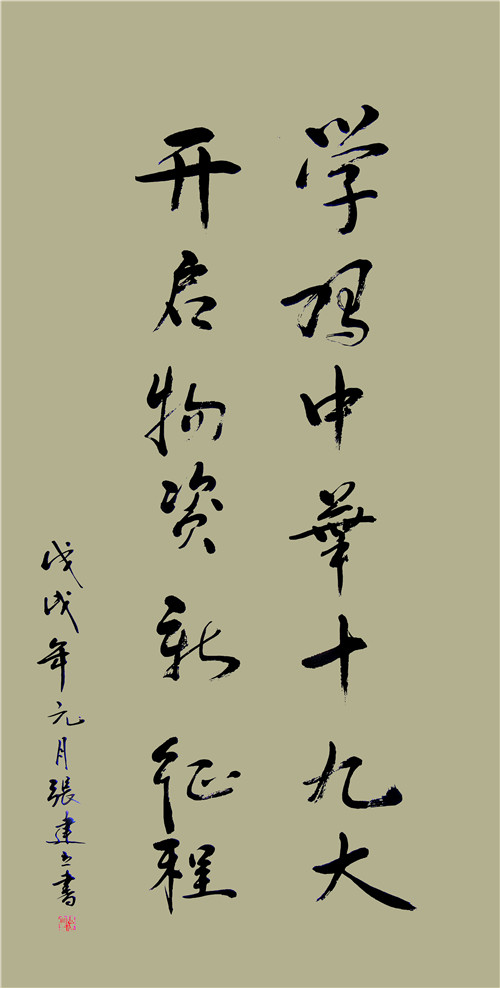 学习中華十九大
开启物资新征程
戊戌年元月張建立書